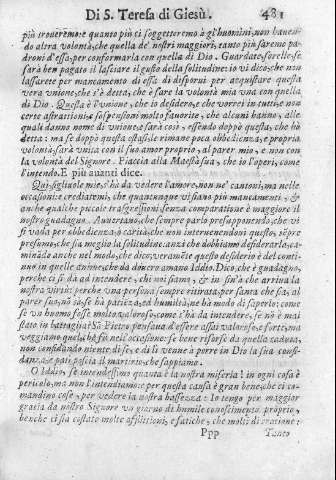 Di S. Teresa di Giesù. 481
più troueremo: e quanto più ci soggetteremo à gl'huomini, non hauen-
do altra volontà, che quella de' nostri maggiori, tanto più saremo pa-
droni d'essa, per conformarla con quella di Dio. Guardate sorelle, se
sarà ben pagato il lasciare il gusto della solitudine: io vi dico, che non
lasciarete per mancamento di essa di disporui per acquistare questa
vera vnione, che s'è detta, che è fare la volontà mia vna con quella
di Dio. Questa è l'vnione, che io desidero, e che vorrei in tutti, e non
certe astrattioni, e sospensioni molto fauorite, che alcuni hanno, alle
quali danno nome di vnione; e sarà così, essendo doppò questa, che hò
detta: ma se doppò questa estasi le rimane poca obbedienza, e propria
volontà, sarà vnita con il suo amor proprio, al parer mio, e non con
la volontà del Signore. Piaccia alla Maestà sua, che io l'operi, come
l'intendo. E più auanti dice.
Quì, figliuole mie, s'hà da vedere l'amore, non ne' cantoni, ma nelle
occasioni: e credatemi, che quantunque vi siano più mancamenti, &
anche qualche piccole trasgressioni, senza comparatione è maggiore il
nostro guadagno. Auuertano, che sempre parlo presupponendo, che vi
si vada per obbedienza, ò carità, che non interuenendoui questo, sẽpre
presumo, che sia meglio la solitudine. anzi che dobbiamo desiderarla, ca-
minãdo anche nel modo, che dico; veramẽte questo desiderio è del conti-
nuo in quelle anime, che da douero amano Iddio. Dico, che è guadagno,
perche ci si dà ad intendere, chi noi siamo, & in sin'à che arriua la
nostra virtù: perche vna persona sempre ritirata, per santa che sia, al
parer suo, nõ sà, se hà patiẽza, ed humiltà, ne hà modo di saperlo: come
se vn huomo fosse molto valoroso, come s'hà da intendere, se nõ è mai
stato in battaglia? Sã Pietro pensaua d'essere assai valoroso, e forte, ma
veggiamo quel, che fù nell'occasione: se bene risorse da quella caduta,
non confidando niente di se, e di lì venne à porre in Dio la sua confi-
danza, e patì poscia il martirio, che sappiamo.
O Iddio, se intendessimo quanta è la nostra miseria! in ogni cosa è
pericolo, ma non l'intendiamo: e per questa causa è gran bene, che ci co-
mandino cose, per vedere la nostra bassezza: Io tengo per maggior
gratia da nostro Signore vn giorno di humile conoscimento proprio,
benche ci sia costato molte afflittioni, e fatiche, che molti di oratione:
Ppp Tanto